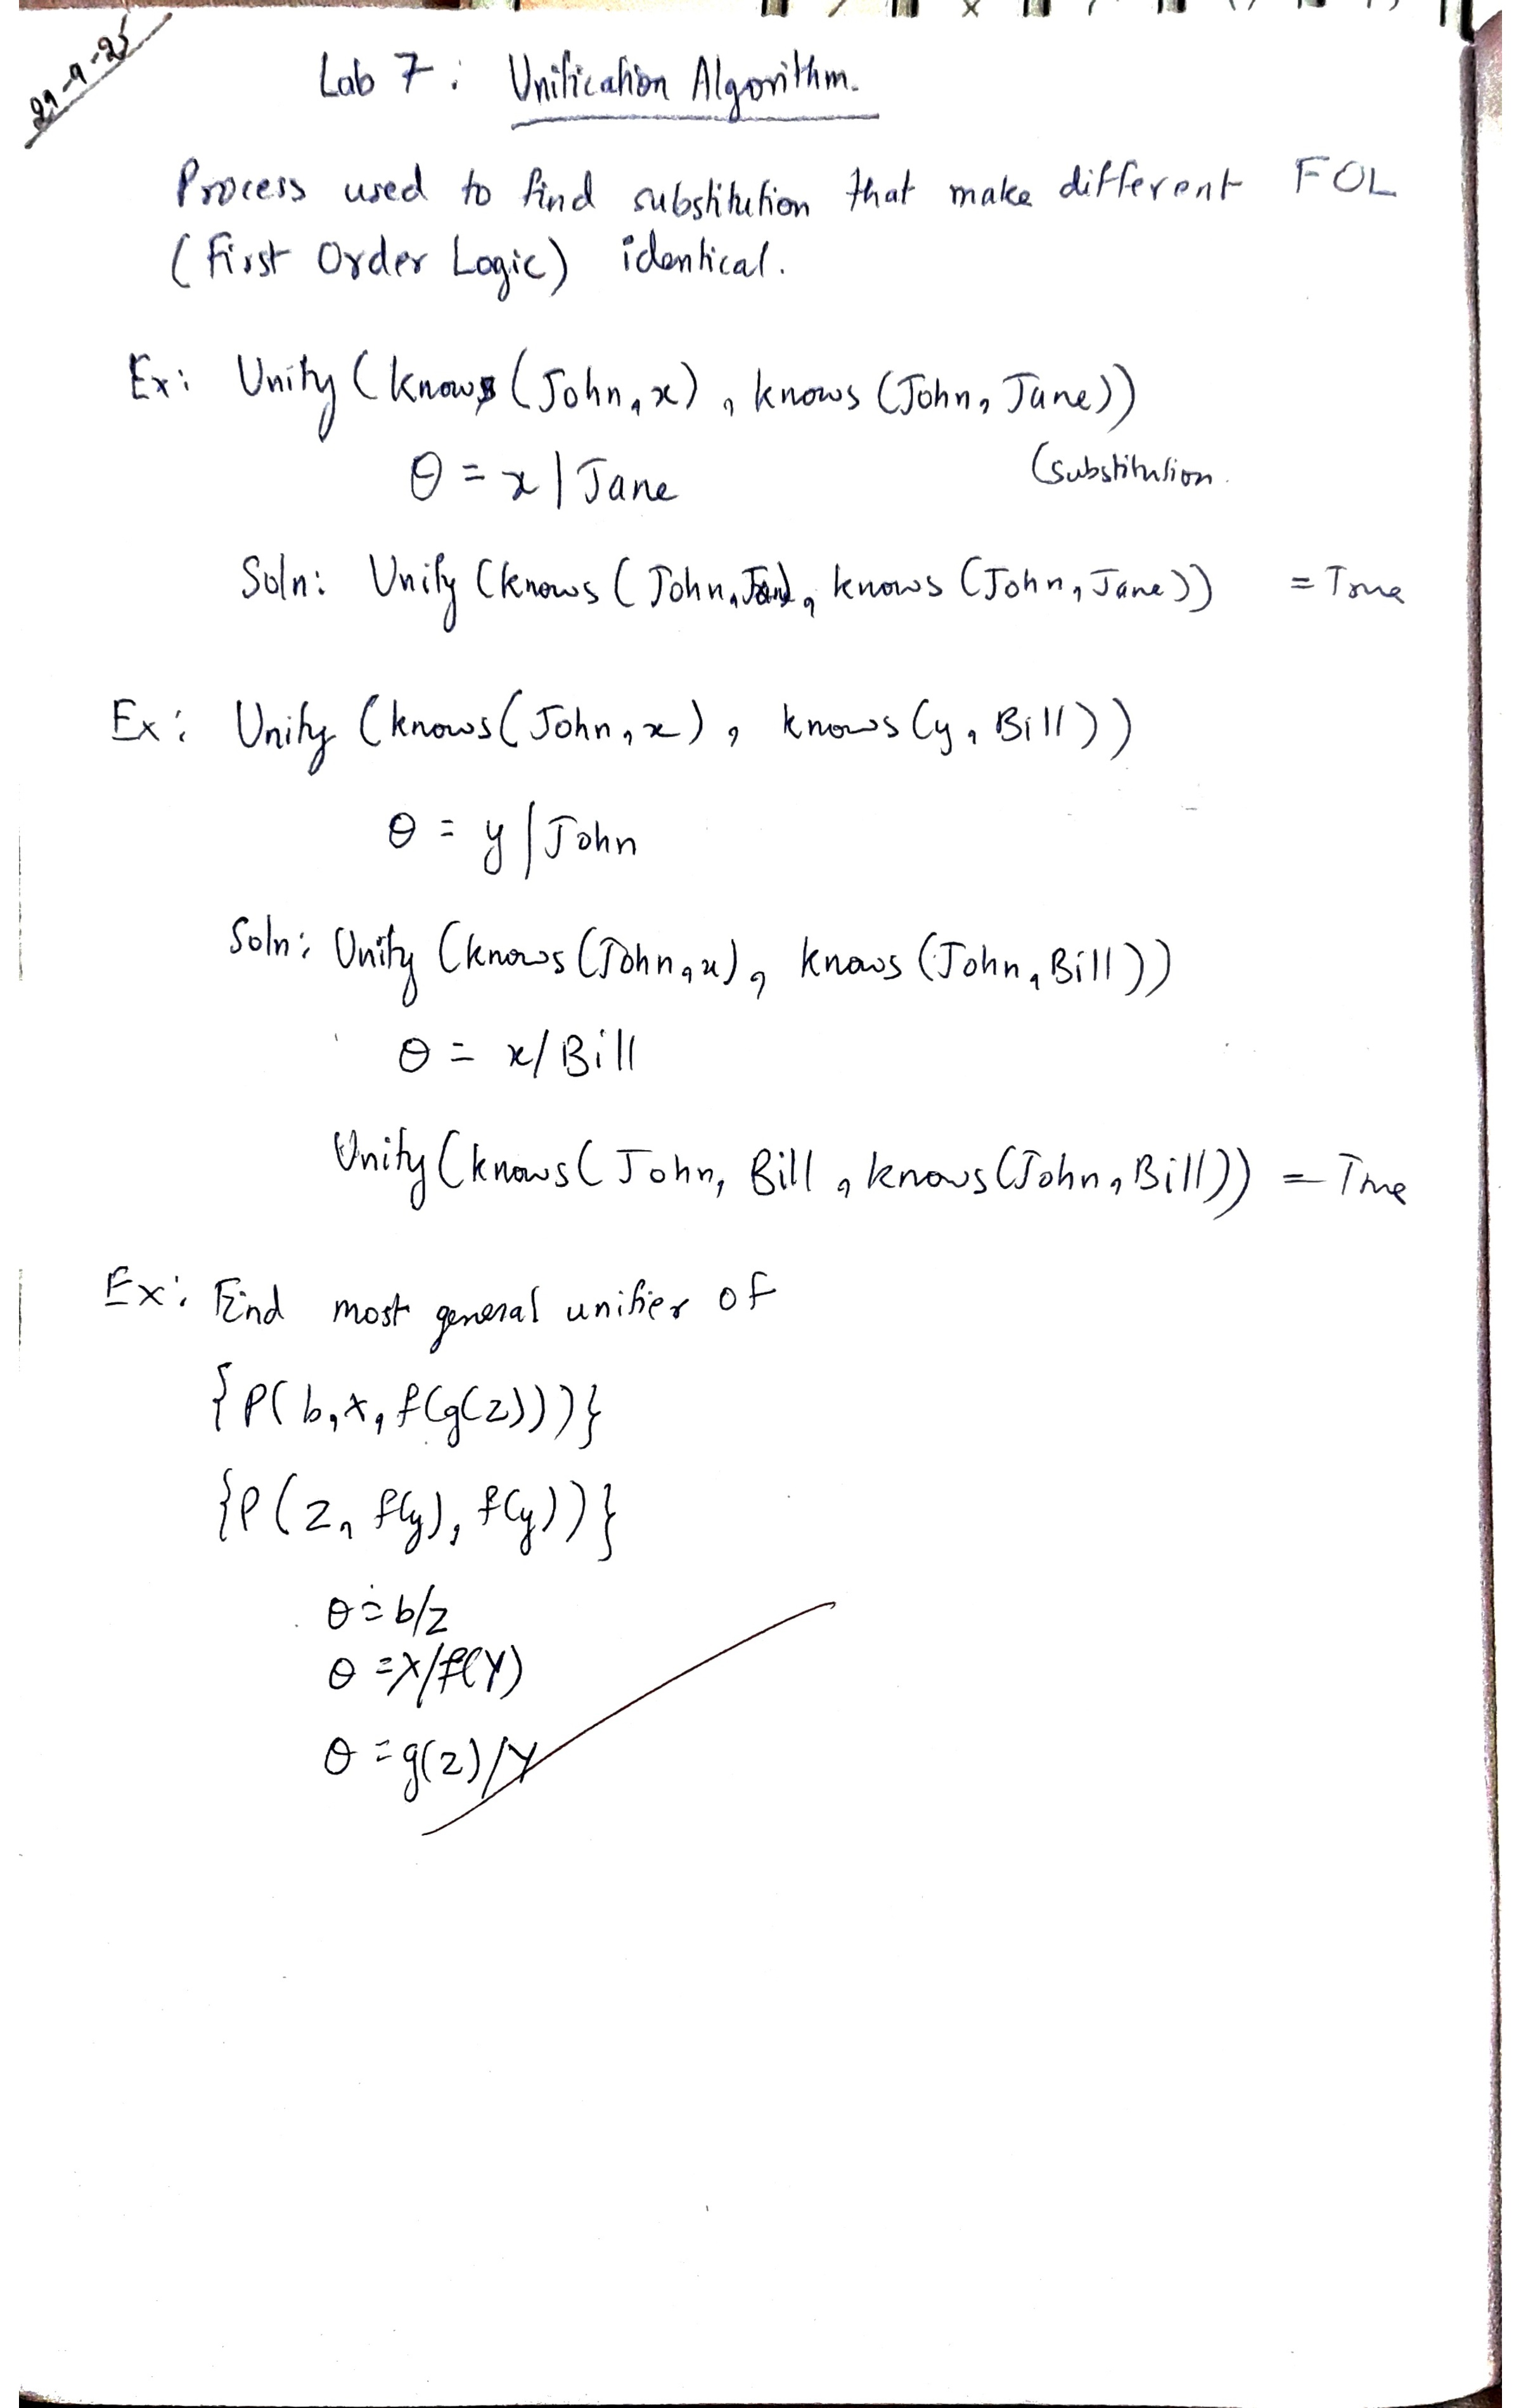 29-9-25
Lab 7: Unification Algorithm.
Process used to find substitution that make different FOL
(First Order Logic) identical.
Ex: Unify (knows (John, x), knows (John, Jane))
θ = x | Jane (substitution
Soln: Unify (knows (John, Jane), knows (John, Jane)) = True
Ex: Unify (knows (John, x), knows (y, Bill))
θ = y / John
Soln: Unify (knows (John, x), knows (John, Bill))
θ = x/Bill
Unify (knows ( John, Bill, knows (John, Bill)) = True
Ex: Find most general unifier of
{P(b, x, f(g(z)))}
{P(z, f(y), f(y))}
θ = b/z
θ = X/f(Y)
θ = g(z)/Y